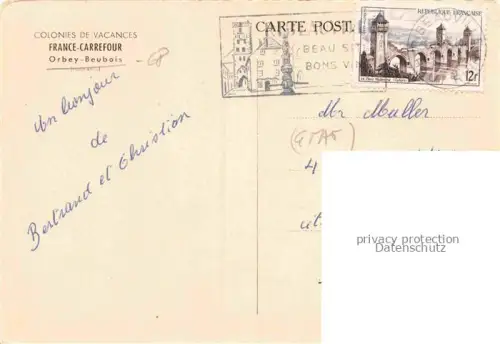 COLONIES DE VACANCES
FRANCE-CARREFOUR
Orbey-Beubois
Un bonjour
de
Bertrand et Christian
CARTE POST
BEAU
BONS
REPUBLIQUE FRANÇAISE
12F
Mr Muller
4
privacy protection
Datenschutz